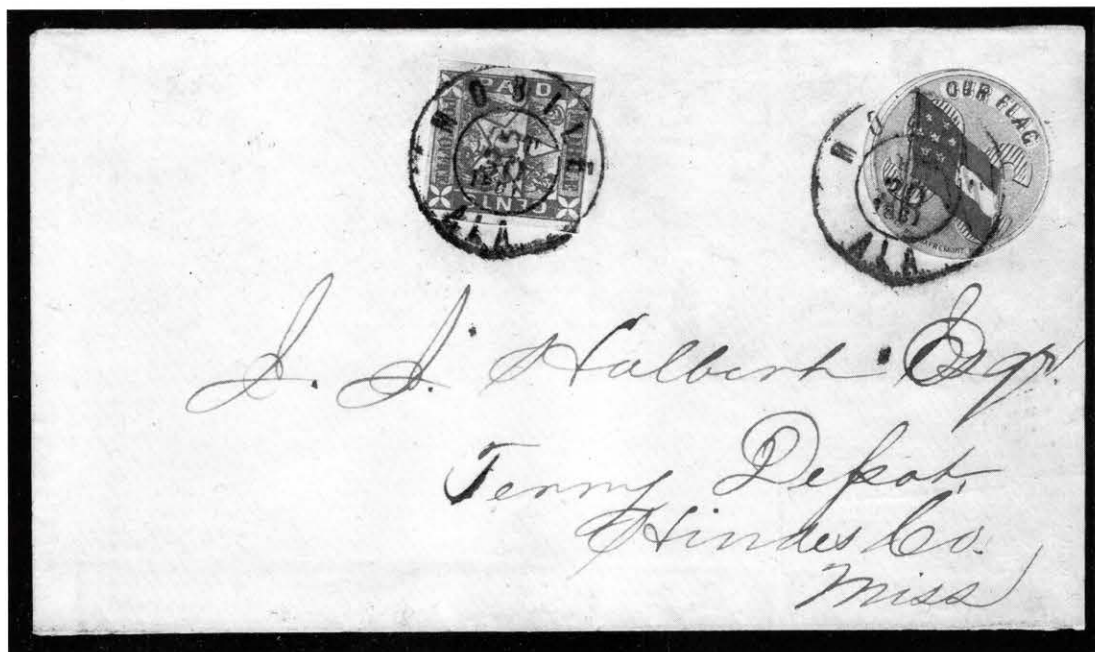 PAID
MOBILE
MOBILE
CENTS
MOBILE
20
1861
ALA
OUR FLAG
20
1861
ALA
J. J. Halbert Esqr.
Terry Depot,
Hindes Co.
Miss